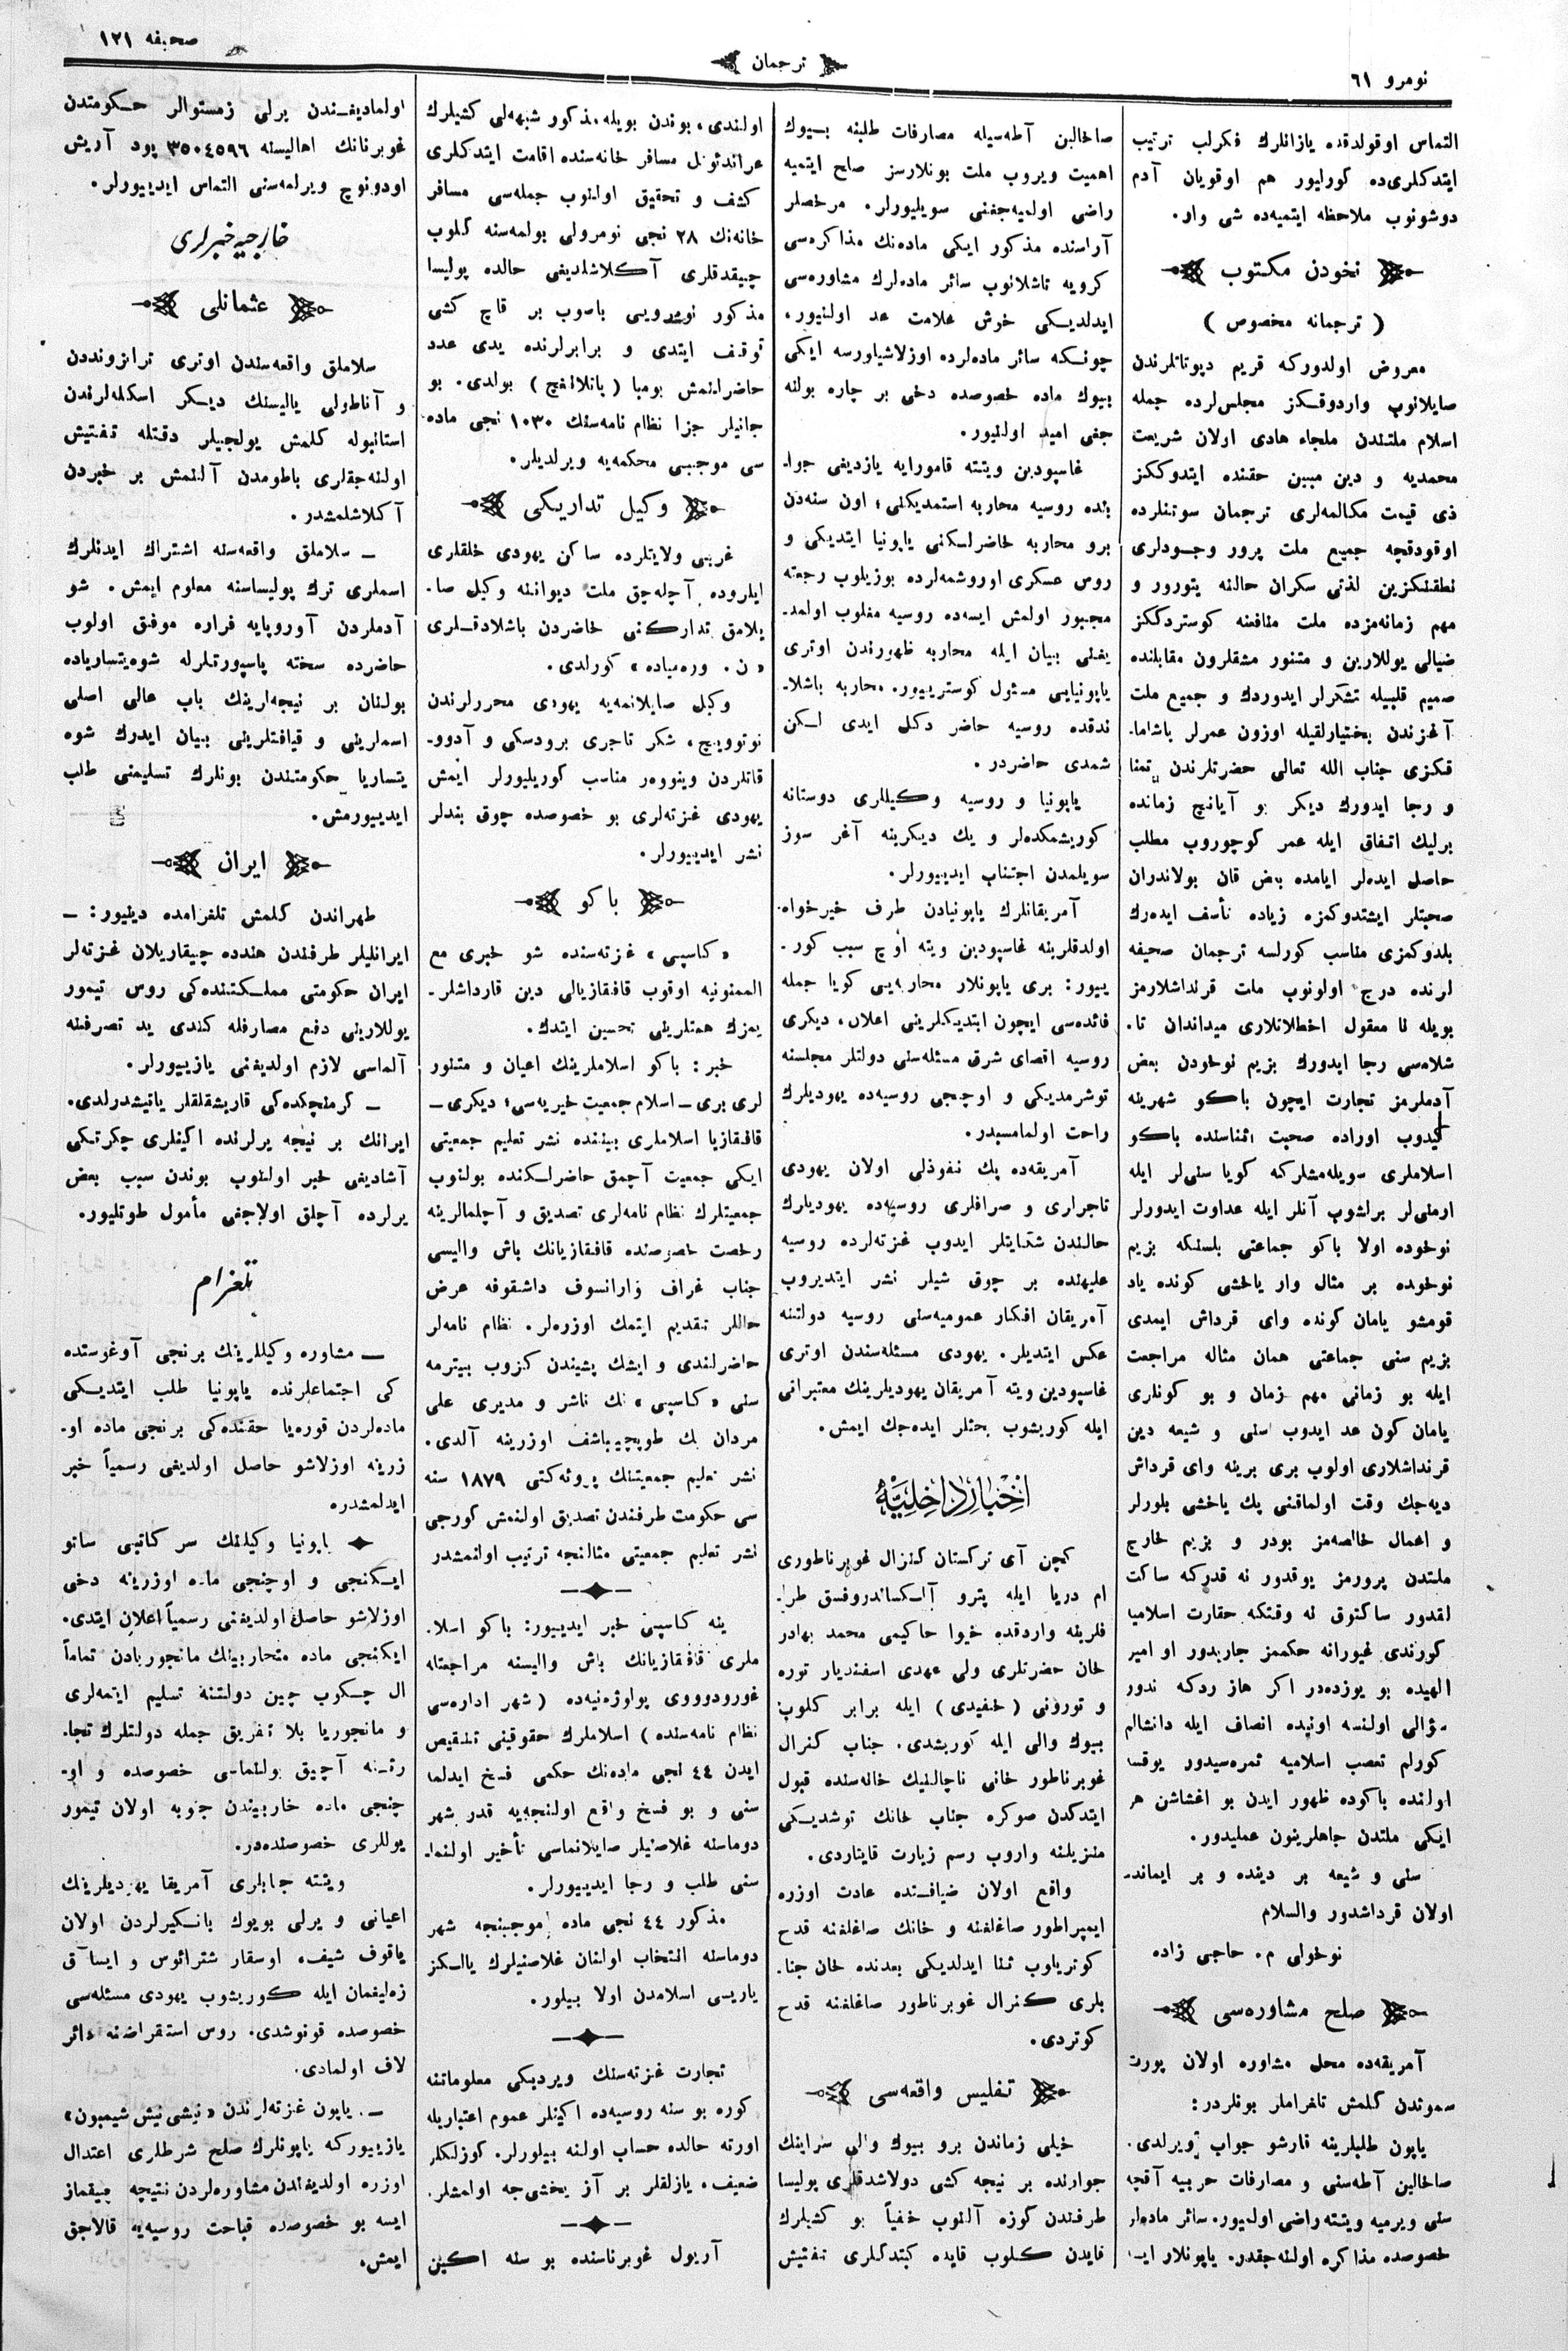 نومرو ٦١
ترجمان
صحیفه ١٢١
التماس اوقولدقده یازانلرك فكرلب ترتیب
ایتدكلری‌ده كورلیور هم اوقویان آدم
دوشونوب ملاحظه ایتمیه‌ده شی وار.
نخودن مكتوب
( ترجمانه مخصوص )
معروض اولدوركه قریم دپوتاتلرندن
صایلانوب واردوقكز مجلس‌لرده جمله
اسلام ملتندن ملجاء هادی اولان شریعت
محمدیه و دین مبین حقنده ایتدوككز
ذی قیمت مكالمه‌لری ترجمان سوتنلرده
اوقودقچه جمیع ملت پرور وجودلری
نطقكزین لذتی سكران حالنه یتورور و
مهم زمانه‌مزده ملت منافعنه كوستردككز
ضیالی یوللارین و متنور مشقلرون مقابلنده
صمیم قلبیله تشكرلر ایدوردك و جمیع ملت
آغزندن بختیارلقیله اوزون عمرلر یاشاما-
قكزی جناب الله تعالی حضرتلرندن تمنا
و رجا ایدورك دیكر بو آیانچ زمانده
برلیك اتفاق ایله عمر كوچوروب مطلب
حاصل ایده‌لر ایامده بعض قان بولاندران
صحبتلر ایشتدوكمزه زیاده تأسف ایده‌رك
بلدوكمزی مناسب كورلسه ترجمان صحیفه
لرنده درج اولونوپ ملت قرنداشلارمز
بویله نا معقول اخطلاتلاری میداندان تا.
شلامسی رجا ایدورك بزیم نوخودن بعض
آدملرمز تجارت ایچون باكو شهرینه
كیدوب اوراده صحبت اثناسنده باكو
اسلاملری سویله‌مشلركه كویا سنی‌لر ایله
ارمنی‌لر برلشوب آنلر ایله عداوت ایدورلر
نوخوده اولا باكو جماعتی بلسنكه بزیم
نوخوده بر مثال وار یالخشی كونده یاد
قومشو یامان كونده وای قرداش ایمدی
بزیم سنی جماعتی همان مثاله مراجعت
ایله بو زمانی مهم زمان و بو كونلری
یامان كون عد ایدوب سنی و شیعه دین
قرنداشلاری اولوب بری برینه وای قرداش
دیه‌جك وقت اولماقنی پك یاخشی بلورلر
و اعمال خالصه‌مز بودر و بزیم خارج
ملتدن پرورمز یوقدور نه قدركه ساكت
لقدور ساكتوق نه وقتكه حقارت اسلامیا
كورندی غیورانه حكممز جاریدور او امیر
الهیده بو یوزده‌در اكر هاز ردكه ندور
سؤالی اولنسه اونیده انصاف ایله دانشالم
كورلم تعصب اسلامیه ثمره‌سیدور یوقسا
اولنده باكوده ظهور ایدن بو اغشاشن هر
ایكی ملتدن جاهلرینون عملیدور.
سنی و شیعه بر دینده و بر ایماند-
اولان قرداشدور والسلام
نوخولی م. حاجی زاده
صلح مشاوره‌سی
آمریقه‌ده محل مشاوره اولان پورت
سموتدن گلمش تلغراملر بونلردر:
یاپون طلبلرینه قارشو جواب ویرلدی.
صاخالین آطه‌سنی و مصارفات حربیه آقچه
سنی ویرمیه ویتته راضی اولمیور. سائر ماده‌لر
خصوصده مذاكره اولنه جقدر. یاپونلار ایسه
صاخالین آطه‌سیله مصارفات طلبنه بیوك
اهمیت ویروب ملت بونلارسز صلح ایتمیه
راضی اولمیه‌جغنی سویلیورلر. مرخصلر
آراسنده مذكور ایكی ماده‌نك مذاكره‌سی
كرویه تاشلانوب سائر ماده‌لرك مشاوره‌سی
ایدلدیكی خوش علامت عد اولنیور.
چونكه سائر ماده‌لرده اوزلاشیاورسه ایكی
بیوك ماده خصوصده دخی بر چاره بولنه
جغی امید اولنیور.
غاسپودین ویتته قامورایه یازدیغی جوا-
بنده روسیه محاربه استمدیكنی؛ اون سنه‌دن
برو محاربه حاضرلسكنی یاپونیا ایتدیكی و
روس عسكری اوروشمه‌لرده بوزیلوب رجعته
مجبور اولمش ایسه‌ده روسیه مغلوب اولمد-
یغنی بیان ایله محاربه ظهورندن اوتری
یاپونیایی مسئول كوسترییور. محاربه باشلا-
ندقده روسیه حاضر دكل ایدی لسكن
شمدی حاضردر.
یاپونیا و روسیه وكیللری دوستانه
كوریشمكده‌لر و یك دیكرینه آغر سوز
سویلمدن اجتناب ایدییورلر.
آمریقانلرك یاپونیادن طرف خیرخواه.
اولدقلرینه غاسپودین ویته اوچ سبب كور-
ییور: بری یاپونلار محاربه‌یی كویا جمله
فائده‌سی ایچون ایتدیكلرینی اعلان، دیكری
روسیه اقصای شرق مسئله‌سنی دولتلر مجلسنه
توشرمدیكی و اوچنجی روسیه‌ده یهودیلرك
راحت اولمامسیدر.
آمریقه‌ده پك نفوذلی اولان یهودی
تاجراری و صرافلری روسیه‌ده یهودیلرك
حالندن شكایتلر ایدوب غزته‌لرده روسیه
علیهنده بر چوق شیلر نشر ایتدیروب
آمریقان افكار عمومیه‌سنی روسیه دولتنه
عكس ایتدیلر. یهودی مسئله‌سندن اوتری
غاسپودین ویته آمریقان یهودیلرینك معتبرانی
ایله كوریشوب بحثلر ایده‌جك ایمش.
اخبار داخلیه
كچن آی تركستان كنرال غوبرناطوری
ام دریا ایله پترو آلسكساندروفسق طر-
فلرینه واردقده خیوا حاكیمی محمد بهادر
خان حضرتلری ولی عهدی اسفندیار توره
و تورونی ( حفیدی ) ایله برابر كلوب
بیوك والی ایله كوریشدی. جناب كنرال
غوبرناطور خانی ناچالنیك خانه‌سنده قبول
ایتدكدن صوكره جناب خانك توشدیكی
منزیلنه واروب رسم زیارت قایتاردی.
واقع اولان ضیافتده عادت اوزره
ایمپراطور صاغلغنه و خانك صاغلغنه قدح
كوتریلوب ثنا ایدلدیكی بعدنده خان جنا-
بلری كنرال غوبرناطور صاغلغنه قدح
كوتردی.
تفلیس واقعه‌سی
خیلی زماندن برو بیوك والی سراینك
جوارنده بر نیچه كشی دولاشدقلری پولیسا
طرفندن كوزه آلنوب خفیاً بو كشیلرك
قایدن كلوب قایده كیتدكلری تفتیش
اولندی، بوندن بویله مذكور شبهه‌لی كشیلرك
غراندئوتل مسافر خانه‌سنده اقامت ایتدكلری
كشف و تحقیق اولنوب جمله‌سی مسافر
خانه‌نك ٢٨ نجی نومرولی بولمه‌سنه كلوب
چیقدقلری آكلاشلدیغی حالده پولیسا
مذكور نومرویی باصوب بر قاچ كشی
توقیف ایتدی و برابرلرنده یدی عدد
حاضرلنمش بومبا ( پاتلانغچ ) بولدی. بو
جانیلر جزا نظام نامه‌سنك ١٠٣٠ نجی ماده
سی موجبسی محكمه‌یه ویرلدیلر.
وكیل تداریكی
غربی ولایتلرده ساكن یهودی خلقلری
ایلروده آچله‌جق ملت دیواننه وكیل صا-
یلامق تداركنی حاضردن باشلادقلری
«ن. وره‌میاده» كورلدی.
وكیل صایلانمه‌یه یهودی محررلرندن
نوتوویچ، شكر تاجری برودسكی و آدوو-
قاتلردن وینووەر مناسب كوریلیورلر ایمش
یهودی غزته‌لری بو خصوصده چوق بندلر
نشر ایدییورلر.
باكو
«كاسپی» غزته‌سنده شو خبری مع
الممنونیه اوقوب قافقازیالی دین قارداشلر-
یمزك همتلرینی تحسین ایتدك.
خبر: باكو اسلاملرینك اعیان و متنور
لری بری - اسلام جمعیت خیریه‌سی؛ دیكری -
قافقازیا اسلاملری بیننده نشر تعلیم جمعیتی
ایكی جمعیت آچمق حاضرلسكنده بولنوب
جمعیتلرك نظام نامه‌لری تصدیق و آچلمالرینه
رخصت خصوصنده قافقازیانك باش والیسی
جناب غراف وارانسوف داشقوفه عرض
حاللر تقدیم ایتمك اوزره‌لر. نظام نامه‌لر
حاضرلندی و ایشك پشیندن كزوب بیترمه
سنی «كاسپی» نك ناشر و مدیری علی
مردان بك طوپچیباشف اوزرینه آلدی.
نشر تعلیم جمعیتنك پروئه‌كتی ١٨٧٩ سنه
سی حكومت طرفندن تصدیق اولنمش كورجی
نشر تعلیم جمعیتی مثالنجه ترتیب اولنمشدر
ینه كاسپی خبر ایدییور: باكو اسلا-
ملری قافقازیانك باش والیسنه مراجعتله
غورودووی پولوژه‌نیه‌ده ( شهر اداره‌سی
نظام نامه‌سنده ) اسلاملرك حقوقینی تنقیص
ایدن ٤٤ نجی ماده‌نك حكمی فسخ ایدلما
سنی و بو فسخ واقع اولنجه‌یه قدر شهر
دوماسنه غلاصنیلر صایلانماسی تأخیر اولنما-
سنی طلب و رجا ایدییورلر.
مذكور ٤٤ نجی ماده موجبنجه شهر
دوماسنه انتخاب اولنان غلاصنیلرك یالسكز
یاریسی اسلامدن اولا بیلور.
تجارت غزته‌سنك ویردیكی معلوماتنه
كوره بو سنه روسیه‌ده اكینلر عموم اعتباریله
اورته حالده حساب اولنه بیلورلر. كوزلكلر
ضعیف، یازلقلر بر آز یخشی‌جه اولمشلر.
آریول غوبرناسنده بو سنه اكین
اولمادیغندن یرلی زمستوالر حكومتدن
غوبرنانك اهالیسنه ٣٥٠٤٥٩٦ پود آریش
اودونوج ویرلمه‌سنی التماس ایدییورلر.
خارجیه خبرلری
عثمانلی
سلاملق واقعه‌سندن اوتری ترابزوندن
و آناطولی یالیسنك دیكر اسكله‌لرندن
استانبوله كلمش یولجیلر دقتله تفتیش
اولنه‌جقلری باطومدن آلنمش بر خبردن
آكلاشلمشدر.
- سلاملق واقعه‌سنه اشتراك ایدنلرك
اسملری ترك پولیساسنه معلوم ایمش. شو
آدملردن آوروپایه فراره موفق اولوب
حاضرده سخته پاسپورتلرله شوه‌یتساریاده
بولنان بر نیجه‌لرینك باب عالی اصلی
اسملرینی و قیافتلرینی بیان ایدرك شوه
یتساریا حكومتندن بونلرك تسلیمنی طلب
ایدییورمش.
ایران
طهراندن كلمش تلغرامده دینیور: -
ایرانلیلر طرفندن هندده چیقاریلان غزته‌لر
ایران حكومتی مملكتنده‌كی روس تیمور
یوللارینی دفع مصارفله كندی ید تصرفنه
آلماسی لازم اولدیغنی یازییورلر.
- كرمنچكده‌كی قاریشقلقلر یاتیشدرلدی.
ایرانك بر نیجه یرلرنده اكینلری چكرتمكی
آشادیغی خبر اولنوب بوندن سبب بعض
یرلرده آچلق اولاجغی مأمول طوتلیور.
تلغرام
— مشاوره وكیللرینك برنجی آوغوستده
كی اجتماعلرنده یاپونیا طلب ایتدیكی
ماده‌لردن قوره‌یا حقنده‌كی برنجی ماده او-
زرینه اوزلاشو حاصل اولدیغی رسمیاً خبر
ایدلمشدر.
یاپونیا وكیلنك سر كاتبی ساتو
ایكنجی و اوچنجی ماده اوزرینه دخی
اوزلاشو حاصل اولدیغنی رسمیاً اعلان ایتدی.
ایكنجی ماده متحاربینك مانجوریادن تماماً
ال چكوب چین دولتنه تسلیم ایتمه‌لری
و مانجوریا بلا تفریق جمله دولتلرك تجا-
رتنه آچیق بولنماسی خصوصده و او-
چنجی ماده خاربیندن جنوبه اولان تیمور
یوللری خصوصنده‌در.
ویتته جنابلری آمریقا یهودیلرینك
اعیانی و یرلی بویوك بانكیرلردن اولان
یاقوف شیف، اوسقار شتراوس و ایساآق
زه‌لیغمان ایله كوریشوب یهودی مسئله‌سی
خصوصده قونوشدی. روس استقراضنه دائر
لاف اولمادی.
- یاپون غزته‌لرندن «نیشی نیش شیمبون»
یازییوركه یاپونلرك صلح شرطلری اعتدال
اوزره اولدیغندن مشاوره‌لردن نتیچه چیقماز
ایسه بو خصوصده قباحت روسیه‌یه قالاجق
ایمش.